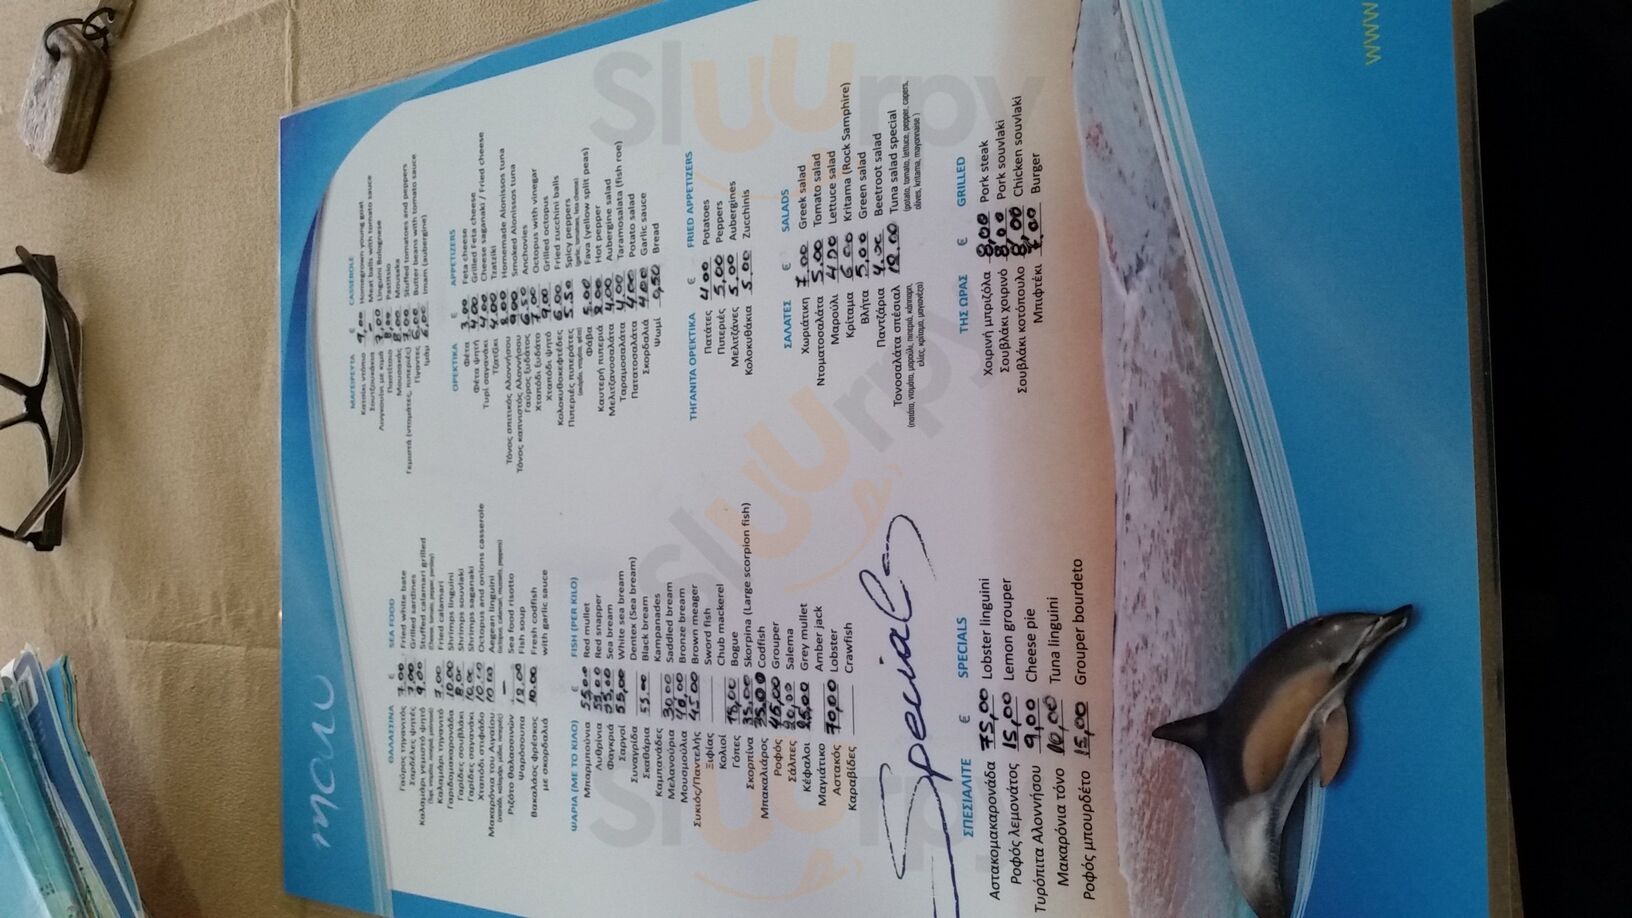 menu
ΘΑΛΑΣΣΙΝΑ € SEA FOOD
Γαύρος τηγανιτός 7.00 Fried white bate
Σαρδέλες ψητές 7.00 Grilled sardines
Καλαμάρι γεμιστό ψητό 9.00 Stuffed calamari grilled
Καλαμάρι τηγανιτό 7.00 Fried calamari
Γαριδομακαρονάδα 10.00 Shrimps linguini
Γαρίδες σουβλάκι 8.00 Shrimps souvlaki
Γαρίδες σαγανάκι 10.00 Shrimps saganaki
Χταπόδι στιφάδο 10.00 Octopus and onions casserole
Μακαρόνια του Αιγαίου 10.00 Aegean linguini
Ριζότο θαλασσινών — Sea food risotto
Ψαρόσουπα 12.00 Fish soup
Βακαλάος φρέσκος 10.00 Fresh codfish
με σκορδαλιά with garlic sauce
ΨΑΡΙΑ (ΜΕ ΤΟ ΚΙΛΟ) € FISH (PER KILO)
Μπαρμπούνια 55.00 Red mullet
Λυθρίνια 55.00 Red snapper
Φαγκριά 55,00 Sea bream
Σαργοί 55,00 White sea bream
Συναγρίδα Dentex (Sea bream)
Σκαθάρια 55.00 Black bream
Καμπανάδες Kampanades
Μελανούρια 30.00 Sadled bream
Μουσμούλια 40,00 Bronze bream
Συκιός/Παντελής 45.00 Brown meager
Ξιφίας Sword fish
Κολιοί Chub mackerel
Γόπες 18,00 Bogue
Σκορπίνα 35.00 Skorpina (Large scorpion fish)
Μπακαλιάρος 35,00 Codfish
Ροφός 45,00 Grouper
Σάλπες 20,00 Salema
Κέφαλοι 25,00 Grey mullet
Μαγιάτικο Amber jack
Αστακός 70,00 Lobster
Καραβίδες Crawfish
Specials
ΣΠΕΣΙΑΛΙΤΕ € SPECIALS
Αστακομακαρονάδα 75,00 Lobster linguini
Ροφός λεμονάτος 15,00 Lemon grouper
Τυρόπιτα Αλοννήσου 9,00 Cheese pie
Μακαρόνια τόνο 10,00 Tuna linguini
Ροφός μπουρδέτο 15,00 Grouper bourdeto
ΜΑΓΕΙΡΕΥΤΑ € CASSEROLE
Κατσίκι ντόπιο 9,00 Homegrown young goat
Σουτζουκάκια — Meat balls with tomato sauce
Λινγκουίνι με κιμά 7,00 Linguini Bolognese
Παστίτσιο 8,00 Pastitsio
Μουσακάς 8.00 Mousaka
Γεμιστά (ντομάτες, πιπεριές) 7.00 Stuffed tomatoes and peppers
Γίγαντες 6.00 Butter beans with tomato sauce
Ιμάμ 6.00 Imam (aubergine)
ΟΡΕΚΤΙΚΑ € APPETIZERS
Φέτα 3.00 Feta cheese
Φέτα ψητή 4.00 Grilled feta cheese
Τυρί σαγανάκι 4.00 Cheese saganaki / Fried cheese
Τζατζίκι 4.00 Tzatziki
Τόνος σπιτικός Αλοννήσου 8.00 Homemade Alonissos tuna
Τόνος καπνιστός Αλοννήσου 9.00 Smoked Alonissos tuna
Γαύρος ξυδάτος 6.50 Anchovies
Χταπόδι ξυδάτο 7.00 Octopus with vinegar
Χταπόδι ψητό 9.00 Grilled octopus
Κολοκυθοκεφτέδες 6.00 Fried zucchini balls
Πιπεριές πιπεράτες 5.50 Spicy peppers
(σκόρδο, ντομάτα, φέτα) (garlic, tomatoes, feta cheese)
Φάβα 5.00 Fava (yellow split peas)
Καυτερή πιπεριά 2.00 Hot pepper
Μελιτζανοσαλάτα 4.00 Aubergine salad
Ταραμοσαλάτα 4.00 Taramosalata (fish roe)
Πατατοσαλάτα 4.00 Potato salad
Σκορδαλιά 4.00 Garlic sauce
Ψωμί 0,50 Bread
ΤΗΓΑΝΙΤΑ ΟΡΕΚΤΙΚΑ € FRIED APPETIZERS
Πατάτες 4.00 Potatoes
Πιπεριές 5,00 Peppers
Μελτζάνες 5.00 Aubergines
Κολοκυθάκια 5.00 Zucchinis
ΣΑΛΑΤΕΣ € SALADS
Χωριάτικη 7.00 Greek salad
Ντοματοσαλάτα 5.00 Tomato salad
Μαρούλι 4.00 Lettuce salad
Κρίταμα 6.00 Kritama (Rock Samphire)
Βλήτα 5.00 Green salad
Παντζάρια 4.00 Beetroot salad
Τονοσαλάτα σπέσιαλ 12.00 Tuna salad special
(πατάτα, ντομάτα, μαρούλι, πιπεριά, κάππαρη, (potato, tomato, lettuce, pepper, capers,
ελιές, κρίταμα, μαγιονέζα) olives, kritama, mayonnaise)
ΤΗΣ ΩΡΑΣ € GRILLED
Χοιρινή μπριζόλα 8,00 Pork steak
Σουβλάκι χοιρινό 8,00 Pork souvlaki
Σουβλάκι κοτόπουλο 8,00 Chicken souvlaki
Μπιφτέκι 7.00 Burger
www
Sluurpy
Sluurpy
Sluurpy